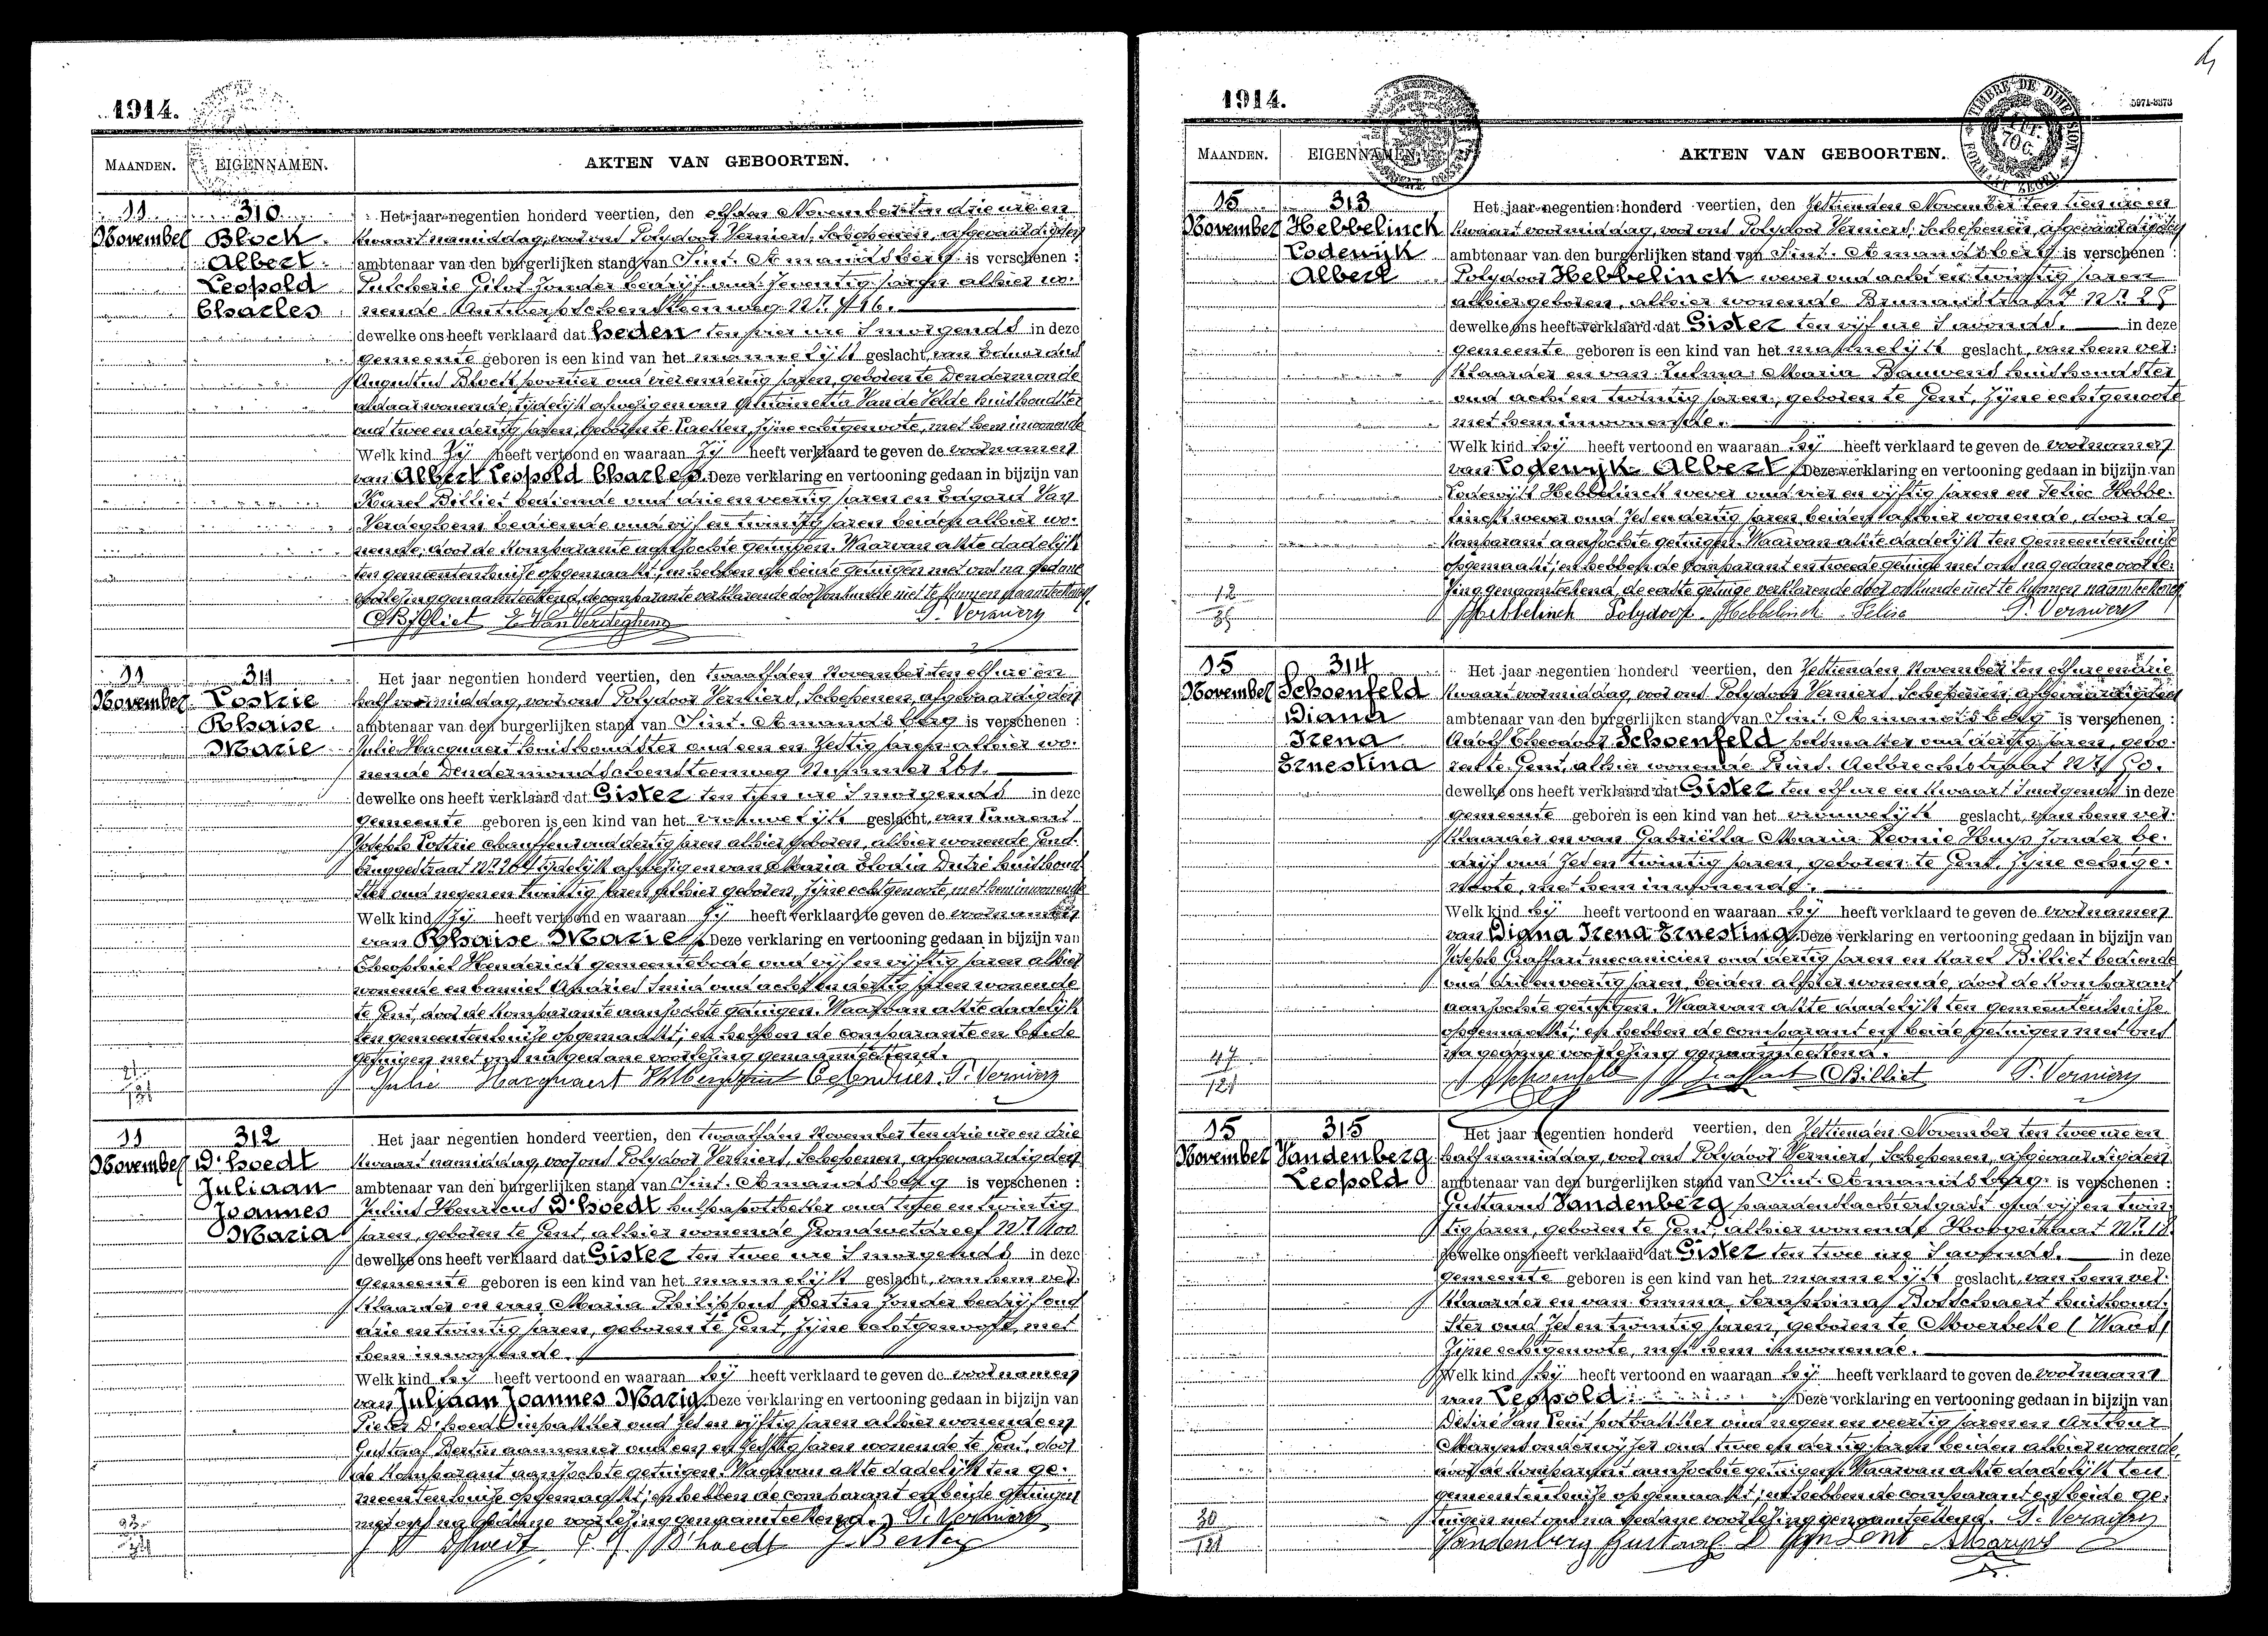 1914.
MAANDEN. EIGENNAMEN. AKTEN VAN GEBOORTEN.
11 310 Het jaar negentien honderd veertien, den elfden November ten drie ure en
November Block kwaart namiddag, voor ons Polydoor Verniers, Schepenen, afgevaardigden
Albert ambtenaar van den burgerlijken stand van Sint. Amandsberg is verschenen :
Leopold Pulcherie Gilot zonder bedrijf oud zeventig jaren alhier wo-
Charles nende Antwerpschensteenweg Nr 16.
dewelke ons heeft verklaard dat heden ten vier ure 's morgends in deze
gemeente geboren is een kind van het mannelijk geslacht, van Eduardus
Augustus Block portier oud vier en dertig jaren, geboren te Dendermonde
aldaar wonende, tijdelijk afwezig en van Antoinetta Van de Velde huishoudster
oud twee en dertig jaren, geboren te Laeken, zijne echtgenoote, met hem inwonende
Welk kind zij heeft vertoond en waaraan zij heeft verklaard te geven de voornamen
van Albert Leopold Charles. Deze verklaring en vertooning gedaan in bijzijn van
Karel Billiet bediende oud drie en veertig jaren en Edgard Van
Verdeghem bediende oud vijf en twintig jaren beiden alhier wo-
nende, door de komparante aanzochte getuigen. Waarvan akte dadelijk
ten gemeentenhuize opgemaakt; en hebben de beide getuigen met ons na gedane
voorlezing genaamteekend, de comparante verklarende door onkunde niet te kunnen naamteekenen.
C Billiet E Van Verdeghem P. Verniers
11 311 Het jaar negentien honderd veertien, den twaalfden November ten elf ure en
November Postrie half voormiddag, voor ons Polydoor Verniers, Schepenen, afgevaardigden
Rhaise ambtenaar van den burgerlijken stand van Sint. Amandsberg is verschenen :
Marie Julie Hacquaert huishoudster oud een en zestig jaren alhier wo-
nende Dendermondschensteenweg Nummer 261.
dewelke ons heeft verklaard dat Gister ten tien ure 's morgends in deze
gemeente geboren is een kind van het vrouwelijk geslacht, van Laurent
Joseph Postrie chauffeur oud dertig jaren alhier geboren, alhier wonende Gend-
bruggestraat Nr 264 tijdelijk afwezig en van Maria Elodia Dutré huishoud-
ster oud negen en twintig jaren alhier geboren, zijne echtgenoote, met hem inwonende
Welk kind zij heeft vertoond en waaraan zij heeft verklaard te geven de voornamen
van Rhaise Marie. Deze verklaring en vertooning gedaan in bijzijn van
Theophiel Henderick gemeentebode oud vijf en vijftig jaren alhier
wonende en Camiel smid oud acht en dertig jaren wonende
te Gent, door de komparante aanzochte getuigen. Waarvan akte dadelijk
ten gemeentenhuize opgemaakt; en hebben de comparante en beide
getuigen met ons na gedane voorlezing genaamteekend.
21
121 Julie Hacquaert P. Verniers
11 312 Het jaar negentien honderd veertien, den twaalfden November ten drie ure en drie
November D'hoedt kwaart namiddag, voor ons Polydoor Verniers, Schepenen, afgevaardigden
Juliaan ambtenaar van den burgerlijken stand van Sint. Amandsberg is verschenen :
Joannes Julius Henricus D'hoedt hulppostbode oud twee en twintig
Maria jaren, geboren te Gent, alhier wonende Grondwetdreef Nr 1100
dewelke ons heeft verklaard dat Gister ten twee ure 's morgends in deze
gemeente geboren is een kind van het mannelijk geslacht, van hem ver-
klaarder en van Maria Philippens Bertin zonder bedrijf oud
drie en twintig jaren, geboren te Gent, zijne echtgenoote, met
hem inwonende.
Welk kind hij heeft vertoond en waaraan hij heeft verklaard te geven de voornamen
van Juliaan Joannes Maria. Deze verklaring en vertooning gedaan in bijzijn van
Pieter D'hoedt inpakker oud zes en vijftig jaren alhier wonende en
Gustaaf Bertin aannemer oud een en zestig jaren wonende te Gent, door
de komparant aanzochte getuigen. Waarvan akte dadelijk ten ge-
meentenhuize opgemaakt; en hebben de comparant en beide getuigen
met ons na gedane voorlezing genaamteekend. P. Verniers
D'hoedt P. D'hoedt G. Bertin
1914.
TIMBRE DE DIMENSION
FORMAAT ZEGEL
MAANDEN. EIGENNAMEN. AKTEN VAN GEBOORTEN.
15 313 Het jaar negentien honderd veertien, den zestienden November ten tien ure en
November Hebbelinck kwaart voormiddag, voor ons Polydoor Verniers, Schepenen, afgevaardigden
Lodewijk ambtenaar van den burgerlijken stand van Sint. Amandsberg is verschenen :
Albert Polydoor Hebbelinck wever oud acht en twintig jaren
alhier geboren, alhier wonende Nr 25
dewelke ons heeft verklaard dat Gister ten vijf ure 's avonds. in deze
gemeente geboren is een kind van het mannelijk geslacht, van hem ver-
klaarder en van Zulma Maria Bauwens huishoudster
oud acht en twintig jaren, geboren te Gent, zijne echtgenoote
met hem inwonende.
Welk kind hij heeft vertoond en waaraan hij heeft verklaard te geven de voornamen
van Lodewijk Albert. Deze verklaring en vertooning gedaan in bijzijn van
Lodewijk Hebbelinck wever oud vier en vijftig jaren en Felix Hebbe-
linck wever oud zes en dertig jaren, beiden alhier wonende, door de
komparant aanzochte getuigen. Waarvan akte dadelijk ten gemeentenhuize
opgemaakt; en hebben de comparant en tweede getuige met ons na gedane voorle-
12 zing genaamteekend, de eerste getuige verklarende door onkunde niet te kunnen naamteekenen
Hebbelinck Polydoor Hebbelinck Felix P. Verniers
15 314 Het jaar negentien honderd veertien, den zestienden November ten elf ure en drie
November Schoenfeld kwaart voormiddag, voor ons Polydoor Verniers, Schepenen, afgevaardigden
Diana ambtenaar van den burgerlijken stand van Sint. Amandsberg is verschenen :
Irena Adolf Theodoor Schoenfeld oud dertig jaren, gebo-
Ernestina ren te Gent, alhier wonende Prins. Aelbrechtstraat Nr 50.
dewelke ons heeft verklaard dat Gister ten elf ure en kwaart 's morgends in deze
gemeente geboren is een kind van het vrouwelijk geslacht, van hem ver-
klaarder en van Gabriëlla Maria Leonie Huys zonder be-
drijf oud zes en twintig jaren, geboren te Gent, zijne echtge-
noote, met hem inwonende.
Welk kind hij heeft vertoond en waaraan hij heeft verklaard te geven de voornamen
van Diana Irena Ernestina. Deze verklaring en vertooning gedaan in bijzijn van
Joseph Graffart mecanicien oud dertig jaren en Karel Billiet bediende
oud drie en veertig jaren, beiden alhier wonende, door de komparant
aanzochte getuigen. Waarvan akte dadelijk ten gemeentenhuize
opgemaakt; en hebben de comparant en beide getuigen met ons
47 na gedane voorlezing genaamteekend.
121 A Schoenfeld J Graffart C Billiet P. Verniers
15 315 Het jaar negentien honderd veertien, den zestienden November ten twee ure en
November Vandenberg half namiddag, voor ons Polydoor Verniers, Schepenen, afgevaardigden
Leopold ambtenaar van den burgerlijken stand van Sint. Amandsberg is verschenen :
Gustavus Vandenberg paardenslachtersgast oud vijf en twin-
tig jaren, geboren te Gent, alhier wonende Hoogstraat Nr 18.
dewelke ons heeft verklaard dat Gister ten twee ure 's avonds. in deze
gemeente geboren is een kind van het mannelijk geslacht, van hem ver-
klaarder en van Emma Seraphina Bosschaert huishoud-
ster oud zes en twintig jaren, geboren te Moerbeke (Waas)
zijne echtgenoote, met hem inwonende.
Welk kind hij heeft vertoond en waaraan hij heeft verklaard te geven de voornaam
van Leopold Deze verklaring en vertooning gedaan in bijzijn van
Desiré Van Lent potbakker oud negen en veertig jaren en Arthur
Maryns onderwijzer oud twee en dertig jaren beiden alhier wonende,
door de komparant aanzochte getuigen. Waarvan akte dadelijk ten
gemeentenhuize opgemaakt; en hebben de comparant en beide ge-
30 tuigen met ons na gedane voorlezing genaamteekend. P. Verniers
121 Vandenberg Gustaaf D Van Lent A Maryns